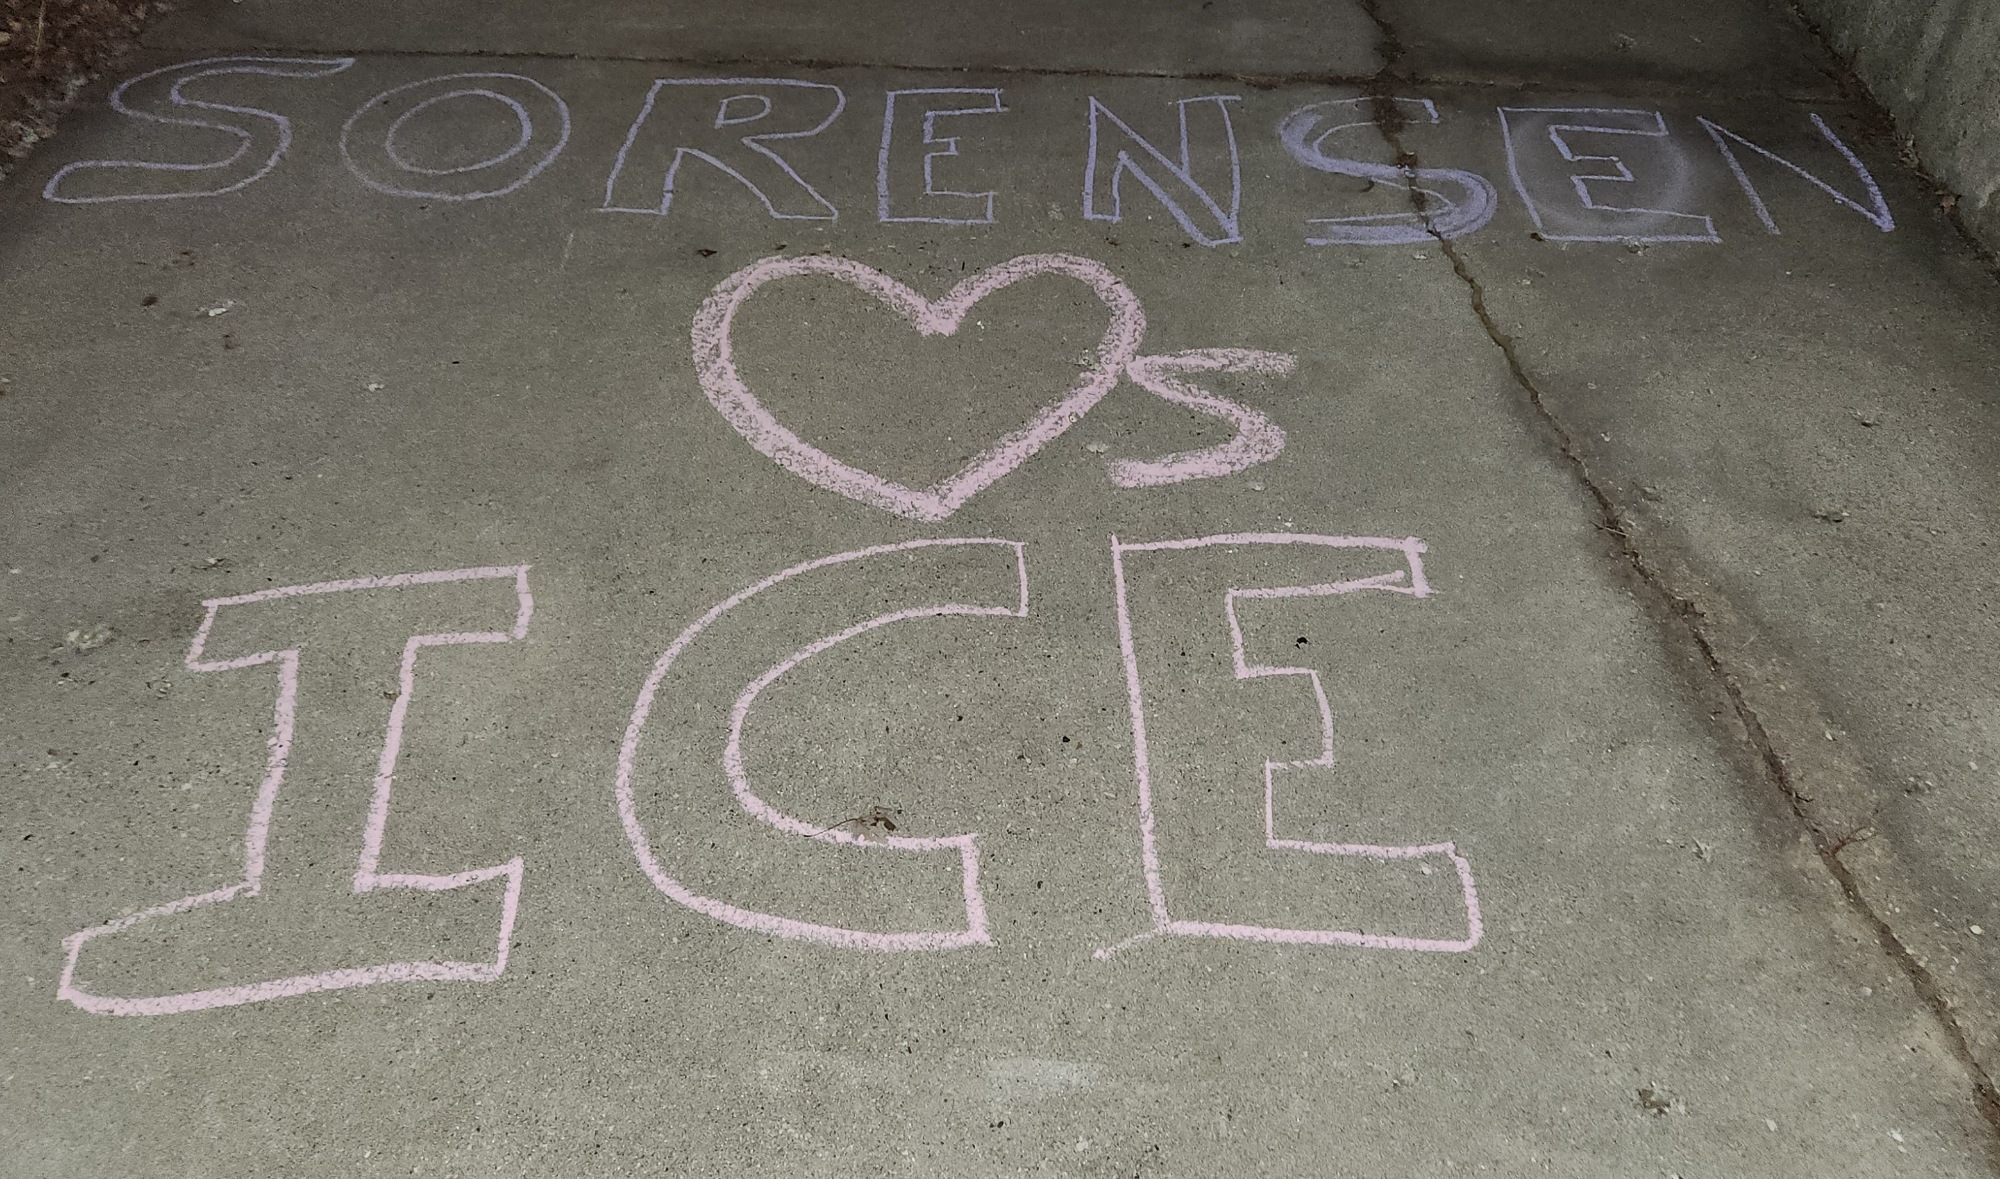 SORENSEN
♡S
ICE